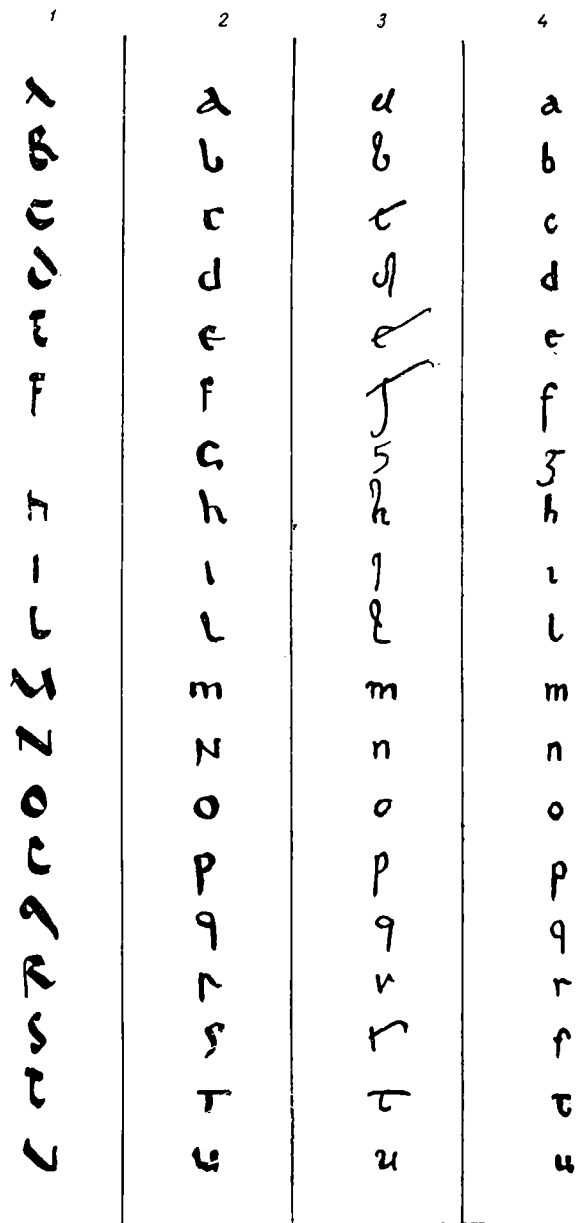 1 2 3 4
a a a a
b b b b
c c c c
d d d d
e e e e
f f f f
G 5 ʒ
h h h h
ı ı ı ı
l l l l
m m m m
N N n n
o o o o
p p p p
q q q q
R r r r
s s ſ ſ
t T t t
u u u u